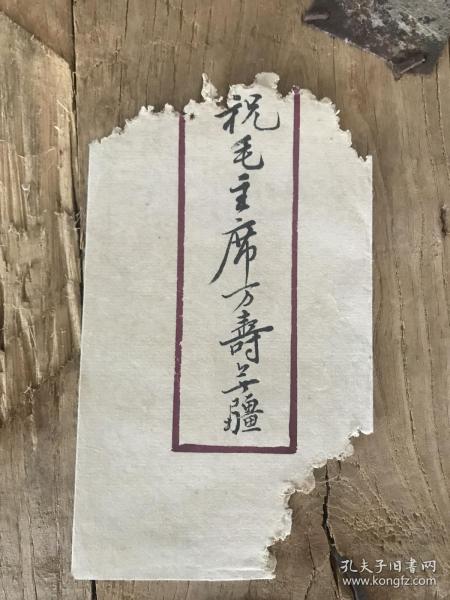 祝毛主席万壽无疆
孔夫子旧书网
www.kongfz.com